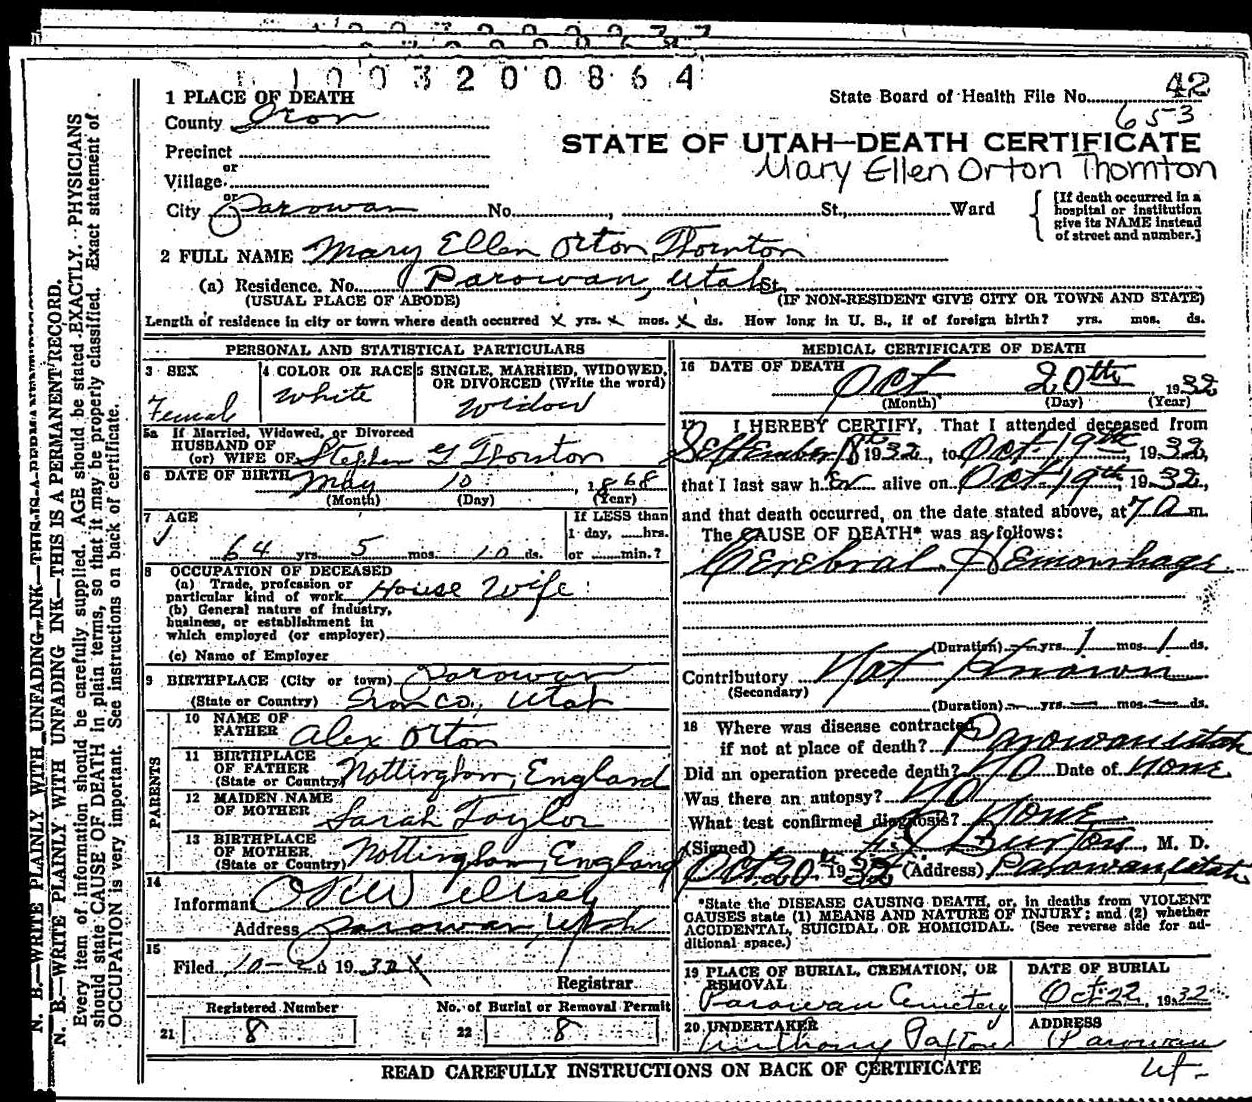 1 1 0 0 3 2 0 0 8 6 4
1 PLACE OF DEATH
State Board of Health File No. 42
County Iron
653
STATE OF UTAH—DEATH CERTIFICATE
Precinct
Mary Ellen Orton Thornton
or
Village
or
City Parowan No. , St., Ward
[If death occurred in a hospital or institution give its NAME instead of street and number.]
2 FULL NAME Mary Ellen Orton Thornton
(a) Residence. No. Parowan, Utah St.
(USUAL PLACE OF ABODE) (IF NON-RESIDENT GIVE CITY OR TOWN AND STATE)
Length of residence in city or town where death occurred x yrs. x mos. x ds. How long in U. S., if of foreign birth? yrs. mos. ds.
PERSONAL AND STATISTICAL PARTICULARS
3 SEX
Female
4 COLOR OR RACE
White
5 SINGLE, MARRIED, WIDOWED, OR DIVORCED (Write the word)
Widow
5a If Married, Widowed, or Divorced
HUSBAND OF
(or) WIFE OF Stephen G Thornton
6 DATE OF BIRTH May 10, 1868
(Month) (Day) (Year)
7 AGE
64 yrs. 5 mos. 10 ds.
If LESS than
1 day, hrs.
or min.?
8 OCCUPATION OF DECEASED
(a) Trade, profession or
particular kind of work House Wife
(b) General nature of industry,
business, or establishment in
which employed (or employer)
(c) Name of Employer
9 BIRTHPLACE (City or town) Parowan
(State or Country) Iron Co, Utah
PARENTS
10 NAME OF
FATHER Alex Orton
11 BIRTHPLACE
OF FATHER
(State or Country) Nottingham, England
12 MAIDEN NAME
OF MOTHER Sarah Taylor
13 BIRTHPLACE
OF MOTHER
(State or Country) Nottingham, England
14
Informant
Address Parowan, Utah
15
Filed 10- 1932 x
Registrar
Registered Number
21 8
No. of Burial or Removal Permit
22 8
MEDICAL CERTIFICATE OF DEATH
16 DATE OF DEATH
Oct 20th 1932
(Month) (Day) (Year)
17 I HEREBY CERTIFY, That I attended deceased from
September 18th 1932, to Oct 19th, 1932,
that I last saw h er alive on Oct 19th, 1932,
and that death occurred, on the date stated above, at 7 a m.
The CAUSE OF DEATH* was as follows:
Cerebral Hemorrhage
(Duration) yrs. 1 mos. 1 ds.
Contributory Not Known
(Secondary)
(Duration) yrs. mos. ds.
18 Where was disease contracted
if not at place of death? Parowan Utah
Did an operation precede death? No Date of None
Was there an autopsy? No
What test confirmed diagnosis? None
(Signed) Burton, M. D.
Oct 20th 1932 (Address) Parowan, Utah
*State the DISEASE CAUSING DEATH, or, in deaths from VIOLENT
CAUSES state (1) MEANS AND NATURE OF INJURY; and (2) whether
ACCIDENTAL, SUICIDAL OR HOMICIDAL. (See reverse side for ad-
ditional space.)
19 PLACE OF BURIAL, CREMATION, OR
REMOVAL
Parowan Cemetery
DATE OF BURIAL
Oct 22, 1932
20 UNDERTAKER
Anthony Paxton
ADDRESS
Parowan
Ut-
READ CAREFULLY INSTRUCTIONS ON BACK OF CERTIFICATE
N. B.—WRITE PLAINLY WITH UNFADING INK—THIS IS A PERMANENT RECORD.
N. B.—WRITE PLAINLY WITH UNFADING INK—THIS IS A PERMANENT RECORD.
Every item of information should be carefully supplied. AGE should be stated EXACTLY. PHYSICIANS
should state CAUSE OF DEATH in plain terms, so that it may be properly classified. Exact statement of
OCCUPATION is very important. See instructions on back of certificate.